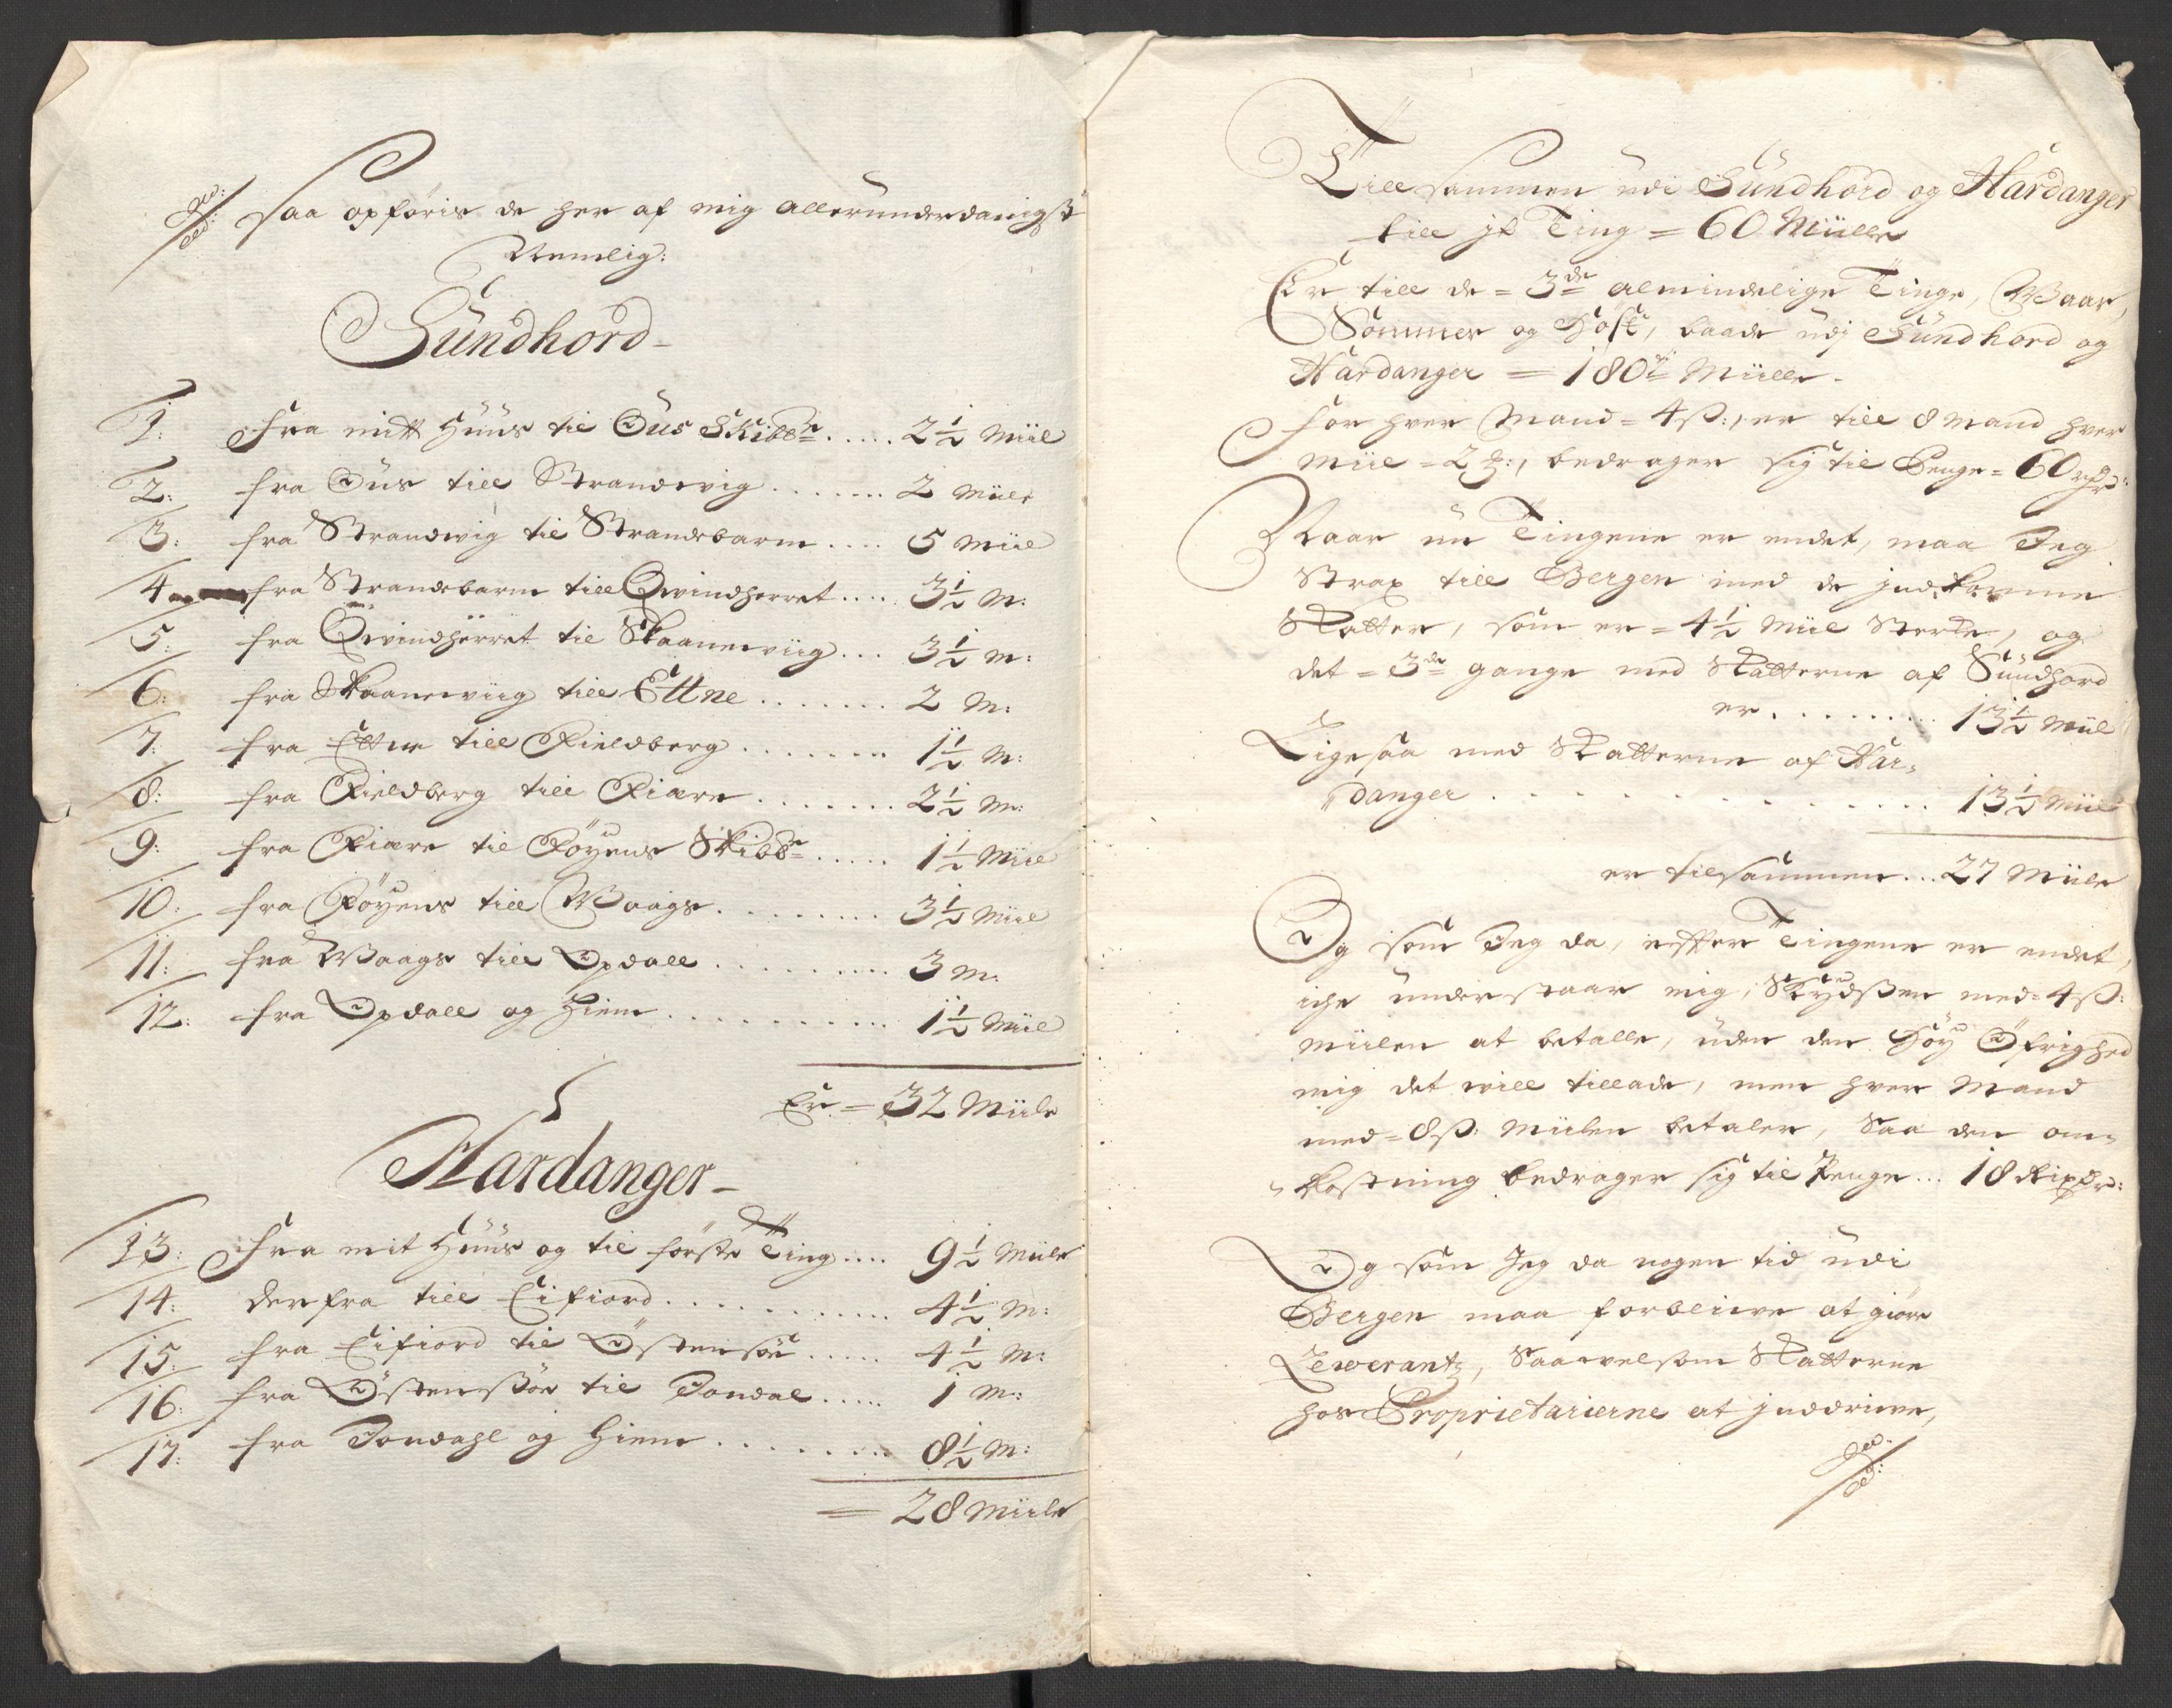 Saa opføris de her af mig allerunderdanigst
Nemlig:
Sundhord
1: Fra mitt Huus til Ous Skibbr: ..... 2½ Miil
2: fra Ous till Strandvig ....... 2 Miile
3: fra Strandvig til Strandebarm .... 5 Miil
4 fra Strandebarm till Qvindherret .... 3½ M:
5: fra Qvindherret til Skaaneviig ... 3½ M:
6: fra Skaaneviig till Ettne ....... 2 M:
7: fra Ettne till Fieldberg ....... 1½ M:
8: fra Fieldberg till Fiære ....... 2½ M:
9: fra Fiære til Føyens Skibbr: ..... 1½ Miil
10: fra Føyens till Waags ......... 3½ Miil
11: fra Waags till Opdall ......... 3 M:
12: fra Opdall og Hiem ........... 1½ Miil
Er = 32 Miile
Hardanger
13: Fra mit Huus og til første Ting .... 9½ Miile
14: derfra till Eifiord .......... 4½ M:
15: fra Eifiord til Østensøe ..... 4½ M:
16: fra Østensøe til Jondal ..... 1 M:
17: fra Jondahl og Hiem ........ 8½ M:
= 28 Miile
Till sammen udi Sundhord og Hardanger
till it Ting = 60 Miille
Er till de = 3de almindelige Tinge, Waar,
Sommer og Høst, baade udj Sundhord og
Hardanger = 180 Miille.
For hver Mand = 4 ß:, er till 8 Mand hver
Miil = 2 ꝳ:, bedrager sig til Penge = 60 rdr:
Naar nu Tingene er endet, maa Jeg
Strax till Bergen med de indkomne
Skatter, som er = 4½ Miil Sterke, og
det = 3de gange med Skatterne af Sundhord
er ........ 13½ Miil
Ligesaa med Skatterne af Har-
danger ................ 13½ Miil
er tilsammen ... 27 Miile
Og som Jeg da, efter Tingene er endet,
iche understaar mig, Skydsen med 4 ß:
Miilen at betalle, uden den Høy Øfrighed
mig det will tillade, men hver Mand
med = 8 ß: Miilen betaler, Saa den om-
kostning bedrager sig til Penge ... 18 Rixdr:
Og som Jeg da nogen tid udi
Bergen maa forblive at giøre
Leverantz, Saavelsom Skatterne
hos Proprietarierne at inddrive,